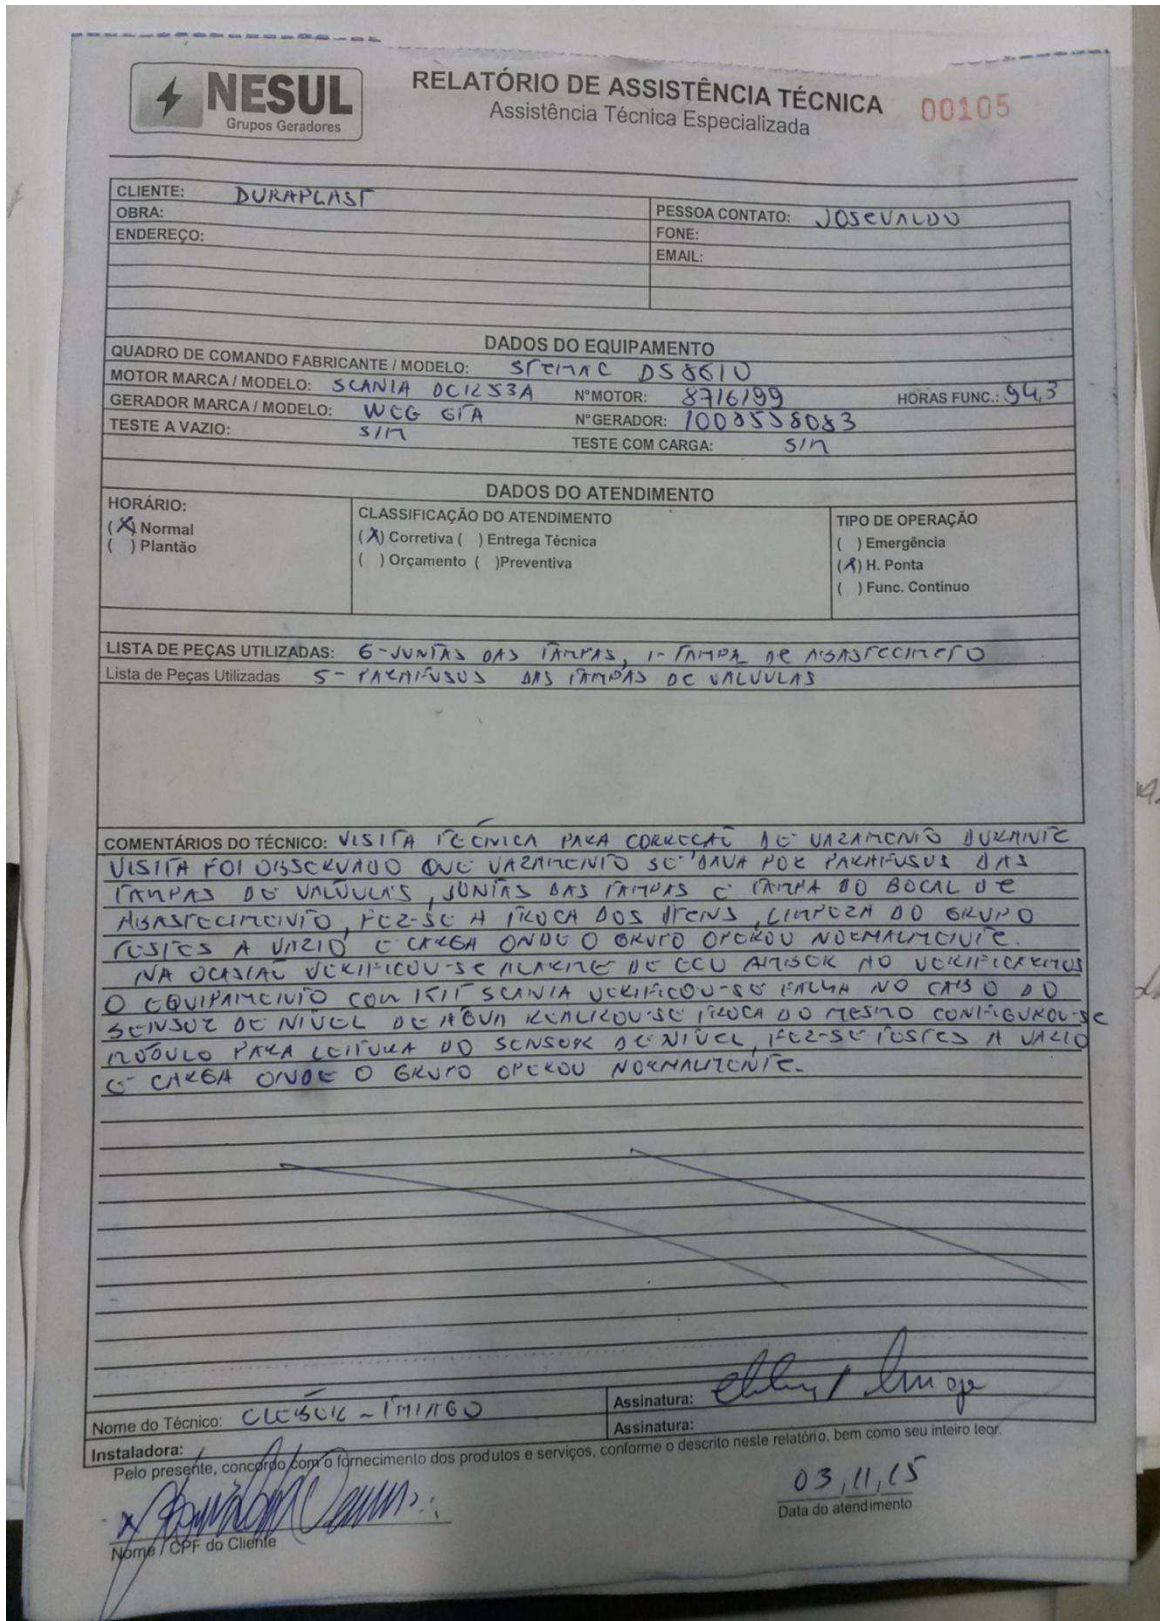 NESUL
Grupos Geradores
RELATÓRIO DE ASSISTÊNCIA TÉCNICA
Assistência Técnica Especializada
00105
CLIENTE: DURAPLAST
OBRA:
ENDEREÇO:
PESSOA CONTATO: JOSEVALDO
FONE:
EMAIL:
DADOS DO EQUIPAMENTO
QUADRO DE COMANDO FABRICANTE / MODELO: STEMAC DS8610
MOTOR MARCA / MODELO: SCANIA DC1253A Nº MOTOR: 8716199 HORAS FUNC.: 943
GERADOR MARCA / MODELO: WEG GTA Nº GERADOR: 1008558083
TESTE A VAZIO: S/N TESTE COM CARGA: S/N
DADOS DO ATENDIMENTO
HORÁRIO:
(X) Normal
( ) Plantão
CLASSIFICAÇÃO DO ATENDIMENTO
(X) Corretiva ( ) Entrega Técnica
( ) Orçamento ( )Preventiva
TIPO DE OPERAÇÃO
( ) Emergência
(X) H. Ponta
( ) Func. Contínuo
LISTA DE PEÇAS UTILIZADAS: 6-JUNTAS DAS TAMPAS, 1-TAMPA DE ABASTECIMETO
Lista de Peças Utilizadas 5-PARAFUSOS DAS TAMPAS DE VALVULAS
COMENTÁRIOS DO TÉCNICO: VISITA TÉCNICA PARA CORREÇAÕ DE VAZAMENTO DURANTE
VISITA FOI OBSERVADO QUE VAZAMENTO SE DAVA POR PARAFUSOS DAS
TAMPAS DE VALVULAS, JUNTAS DAS TAMPAS E TAMPA DO BOCAL DE
ABASTECIMENTO, FEZ-SE A TROCA DOS ITENS, LIMPEZA DO GRUPO
TESTES A VAZIO E CARGA ONDE O GRUPO OPEROU NORMALMENTE.
NA OCASIAÕ VERIFICOU-SE ALARME DE ECU AMBER AO VERIFICARMOS
O EQUIPAMENTO COM KIT SCANIA VERIFICOU-SE FALHA NO CABO DO
SENSOR DE NIVEL DE AGUA REALIZOU-SE TROCA DO MESMO CONFIGUROU-SE
MODULO PARA LEITURA DO SENSOR DE NIVEL, FEZ-SE TESTES A VAZIO
E CARGA ONDE O GRUPO OPEROU NORMALMENTE.
Nome do Técnico: CLEBER - THIAGO Assinatura:
Assinatura:
Instaladora:
Pelo presente, concordo com o fornecimento dos produtos e serviços, conforme o descrito neste relatório, bem como seu inteiro teor.
03,11,15
Data do atendimento
Nome / CPF do Cliente